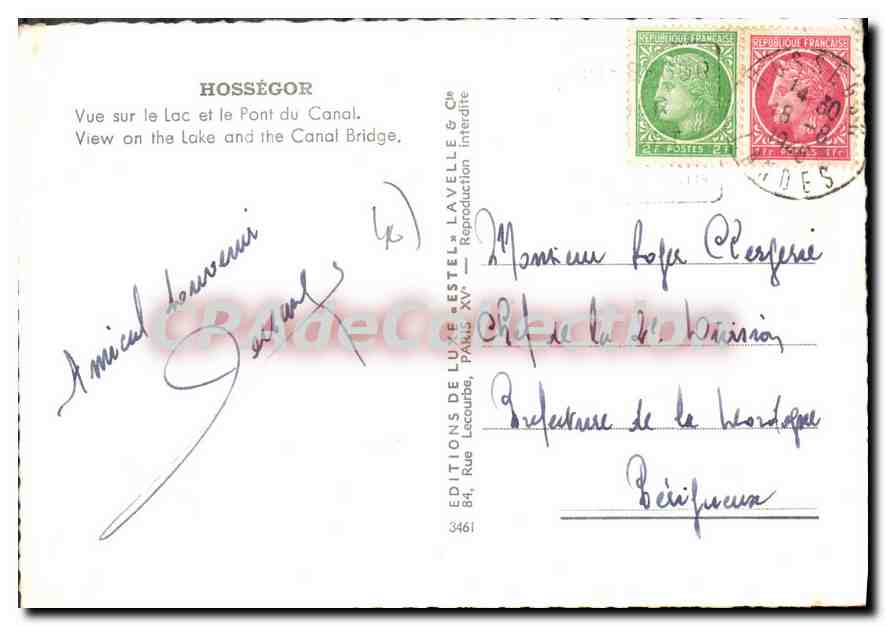 HOSSÉGOR
Vue sur le Lac et le Pont du Canal.
View on the Lake and the Canal Bridge.
Amical souvenir
EDITIONS DE LUXE "ESTEL" LAVELLE & Cie
84, Rue Lecourbe, PARIS XVe — Reproduction interdite
3461
REPUBLIQUE FRANÇAISE
2F POSTES 2F
REPUBLIQUE FRANÇAISE
1F POSTES 1F
HOSSEGOR
14-30
LANDES
Monsieur Roger Clergerie
Chef de la 2e Division
Préfecture de la Dordogne
Périgueux
CPAdeCollection